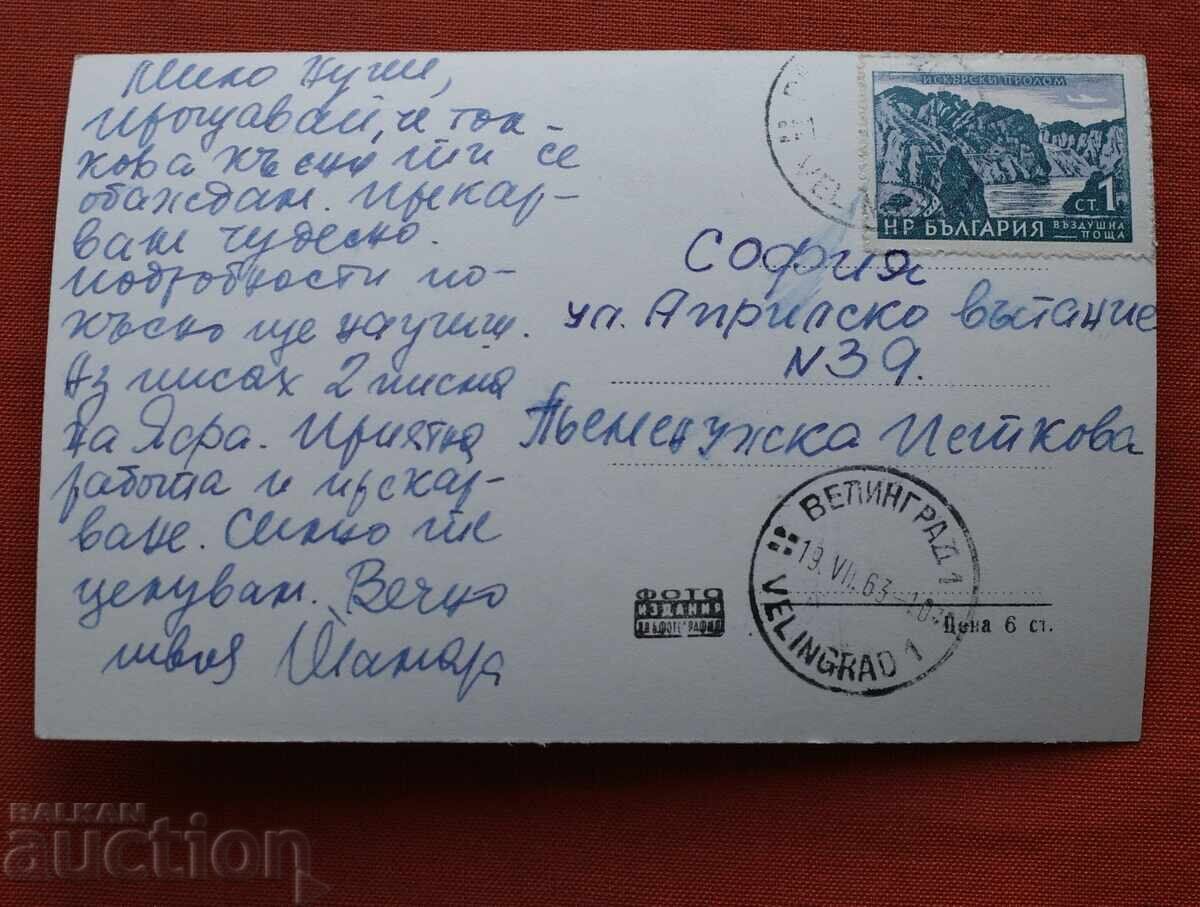 Мило Нуши,
прощавай, че тол-
кова късно ти се
обаждам. Прекар-
вам чудесно.
Подробности по-
късно ще научиш.
Аз писах 2 писма
на Ясра. Приятна
работа и прекар-
ване. Силно те
целувам. Вечно
твоя
ИСКЪРСКИ ПРОЛОМ
СТ. 1
НР БЪЛГАРИЯ
ВЪЗДУШНА
ПОЩА
София
ул. Априлско въстание
N 39.
Теменужка Петкова
ВЕЛИНГРАД 1
19. VII. 63
VELINGRAD 1
ФОТО
ИЗДАНИЯ
Цена 6 ст.
BALKAN
auction